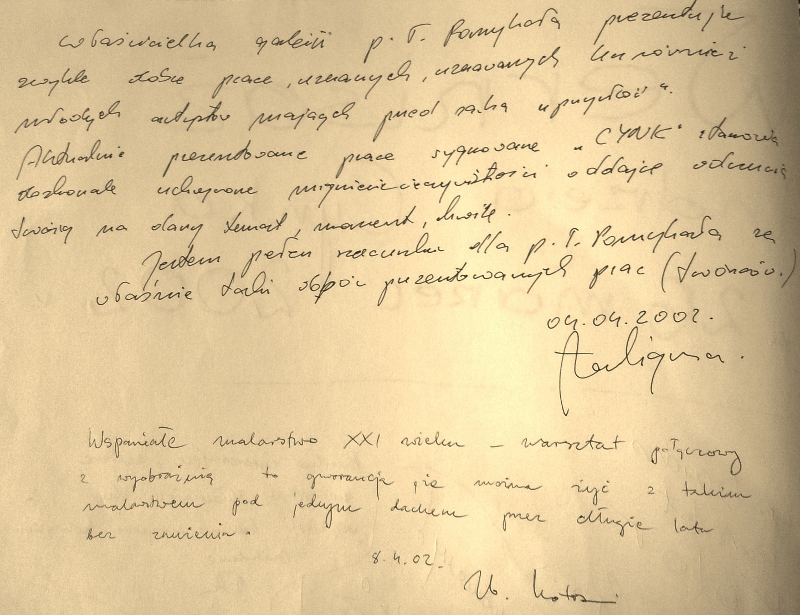 właścicielka galerii p. T. Pomykała prezentuje
zwykle dobre prace, uznanych, uznawanych lub również
młodych artystów mających przed sobą „przyszłość".
Aktualnie prezentowane prace sygnowane „CYNK" stanowią
doskonale uchwycone oddające odczucia
twórcy na dany temat, moment, chwilę.
Jestem pełen szacunku dla p. T. Pomykała za
właśnie taki wybór prezentowanych prac (twórców.)
04.04.2002.
Wspaniałe malarstwo XXI wieku – warsztat połączony
z wyobraźnią to gwarancja, że można żyć z takim
malarstwem pod jednym dachem przez długie lata
bez znużenia.
8.4.02.